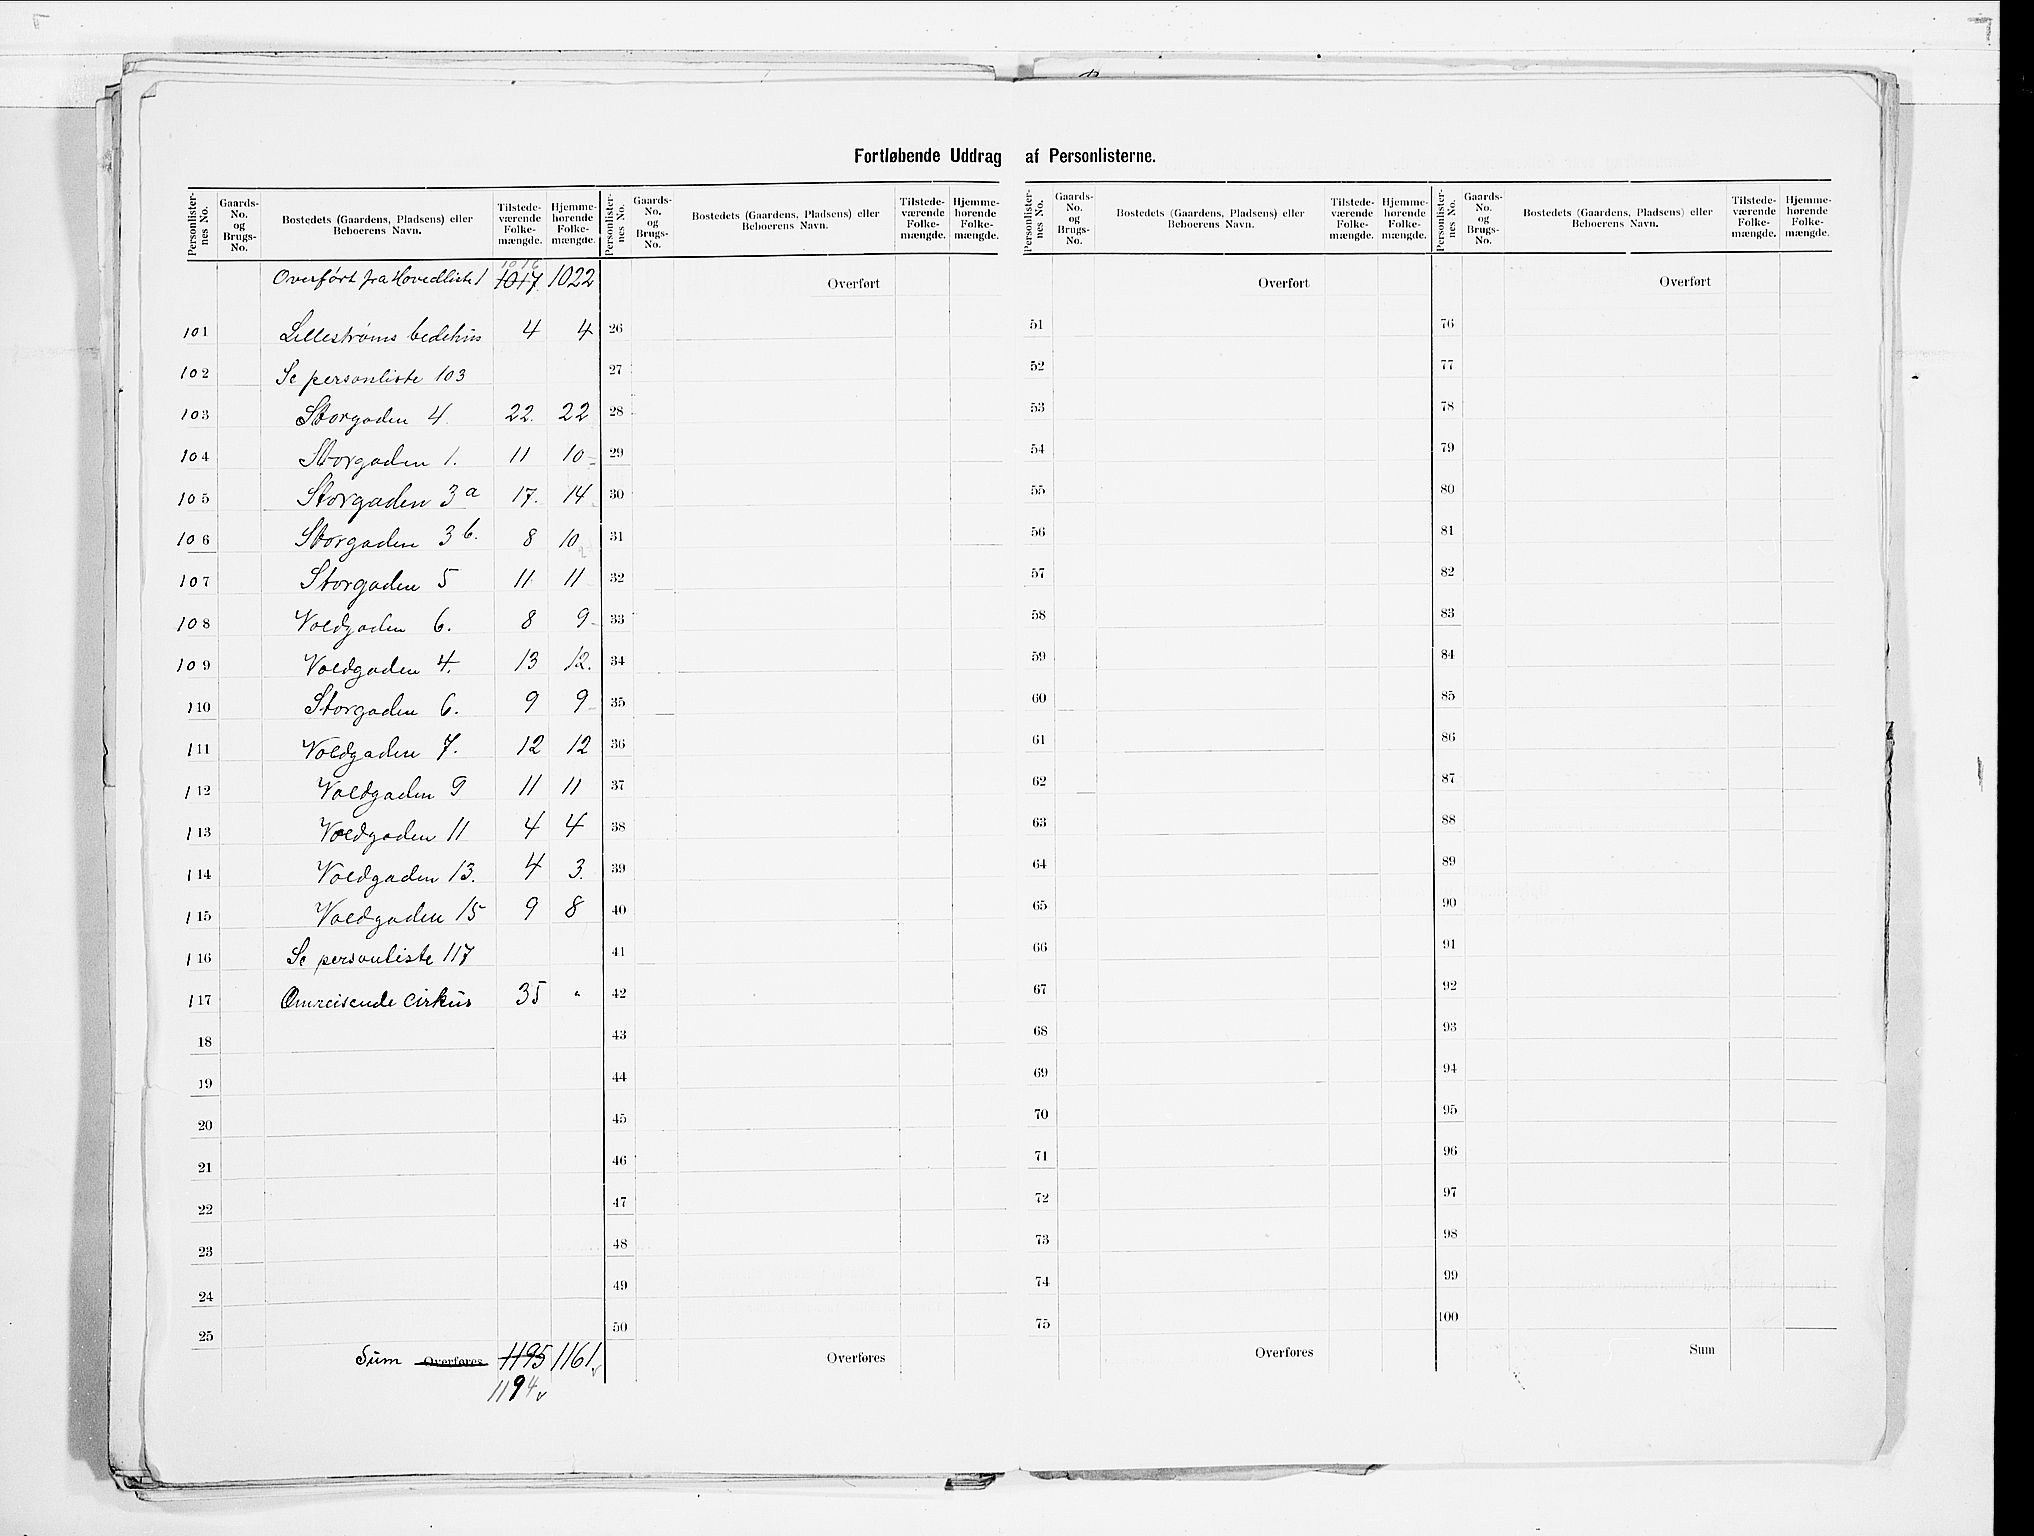 Fortløbende Uddrag af Personlisterne.
Personlister-nes No. | Gaards-No. og Brugs-No. | Bostedets (Gaardens, Pladsens) eller Beboerens Navn. | Tilstede-værende Folke-mængde. | Hjemme-hørende Folke-mængde.
1016
Overført fra Hovedliste 1 1017. 1022
101 Lillestrøms bedehus 4 4
102 Se personliste 103
103 Storgaden 4 22. 22
104 Storgaden 1. 11 10
105 Storgaden 3 a 17. 14
106 Storgaden 3 b. 8 10
107 Storgaden 5 11 11
108 Voldgaden 6. 8 9
109 Voldgaden 4. 13 12.
110 Storgaden 6. 9 9
111 Voldgaden 7. 12 12
112 Voldgaden 9 11 11
113 Voldgaden 11 4 4
114 Voldgaden 13. 4 3.
115 Voldgaden 15 9 8
116 Se personliste 117
117 Omreisende cirkus 35 "
18
19
20
21
22
23
24
25
Sum Overføres 1195 1161
1194
Personlister-nes No. | Gaards-No. og Brugs-No. | Bostedets (Gaardens, Pladsens) eller Beboerens Navn. | Tilstede-værende Folke-mængde. | Hjemme-hørende Folke-mængde.
Overført
26
27
28
29
30
31
32
33
34
35
36
37
38
39
40
41
42
43
44
45
46
47
48
49
50
Overføres
Personlister-nes No. | Gaards-No. og Brugs-No. | Bostedets (Gaardens, Pladsens) eller Beboerens Navn. | Tilstede-værende Folke-mængde. | Hjemme-hørende Folke-mængde.
Overført
51
52
53
54
55
56
57
58
59
60
61
62
63
64
65
66
67
68
69
70
71
72
73
74
75
Overføres
Personlister-nes No. | Gaards-No. og Brugs-No. | Bostedets (Gaardens, Pladsens) eller Beboerens Navn. | Tilstede-værende Folke-mængde. | Hjemme-hørende Folke-mængde.
Overført
76
77
78
79
80
81
82
83
84
85
86
87
88
89
90
91
92
93
94
95
96
97
98
99
100
Sum